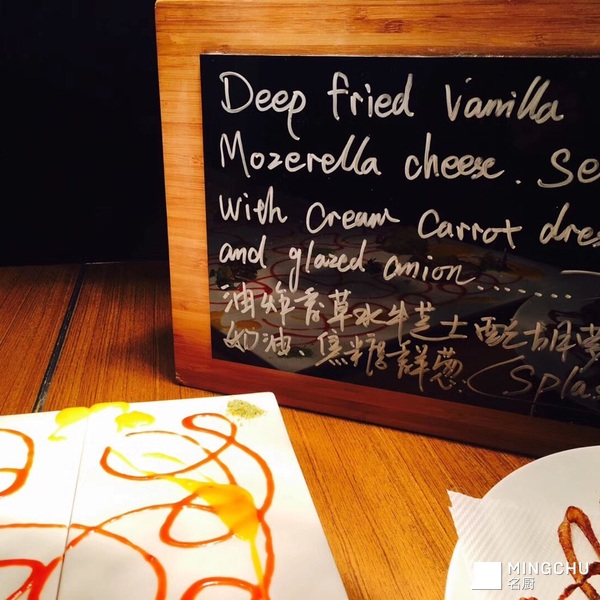 Deep fried Vanilla
Mozerella cheese. Se
with cream carrot dres
and glazed onion.......
油炸香草水牛芝士配胡萝
奶油、焦糖洋葱(Splas
MINGCHU
名厨